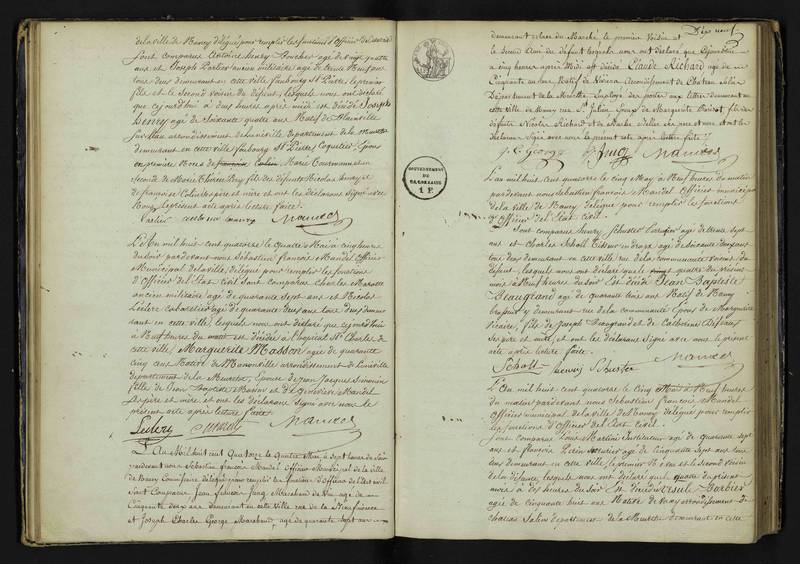 de la ville de Nancy délégué pour remplir les fonctions d'Officier de l'état civil
sont comparus Antoine henry Boucher agé de vingt quatre
ans et Joseph Parlier ancien militaire agé de trente neuf ans
tous deux demeurant en cette ville faubourg St Pierre le premier
fils et le second voisin du défunt, lesquels nous ont déclaré
que cejourd'hui à deux heures après midi est décédé Joseph
Henry agé de soixante quatre ans Natif de Blainville
sur l'eau arrondissement de Lunéville département de la Meurthe
demeurant en cette ville faubourg St Pierre, Coquetier, Epoux
en première Noces de Marie et en
seconde de Marie Thérèse fils des défunts Nicolas henry et
de françoise Colin ses père et mère et ont les déclarans signé avec
Nous le présent acte après lecture faite.
Parlier Mandel
L'An mil huit cent quatorze le quatre Mai à cinq heures
du soir pardevant nous Sébastien françois Mandel Officier
Municipal de la ville, délégué pour remplir les fonctions
d'Officier de l'Etat Civil sont comparus Charles Marotte
ancien militaire agé de quarante sept ans et Nicolas
Leclerc cabaretier agé de quarante deux ans tous deux demeu
rant en cette ville, lesquels nous ont déclaré que cejourd'hui
à Neuf heures du matin est décédée à l'hopital St Charles de
cette ville, Marguerite Masson agée de quarante
cinq ans Native de Manonville arrondissement de Lunéville
département de la Meurthe, Epouse de Jean Jacques Simonin
fille de Jean Baptiste Masson et de Geneviève Mandel
ses père et mère et ont les déclarans signé avec nous le
présent acte après lecture faite.
Leclerc Marotte Mandel
L'an Mil huit cent Quatorze le Quatre Mai, à sept heures du soir
pardevant nous Sébastien françois Mandel Officier Municipal de la ville
de Nancy Commissaire délégué pour remplir les fonctions d'officier de l'état civil
Sont Comparus, Jean Jung Marchand de Vin agé de
Cinquante deux ans demeurant en cette ville rue de la
et Joseph Charles George Marchand, agé de quarante sept ans
Dix neuf
demeurant place du Marché, le premier Voisin et
le second Ami du défunt lesquels nous ont déclaré que Cejourd'hui
à cinq heures après Midi est décédé Claude Richard agé de
Cinquante un ans, Natif de Arrondissement de Chateau Salins
Département de la Meurthe Employé des postes aux lettres demeurant en
cette ville de Nancy rue St Julien Epoux de Marguerite fils des
défunts Nicolas Richard et de ses père et mère et ont les
déclarans signé avec nous le présent acte après lecture faite.
J. C. George J Jung Mandel
GOUVERNEMENT
DE
LA LORRAINE
1 F.
L'an Mil huit cent quatorze le cinq May à Neuf heures du matin
pardevant nous Sébastien françois Mandel Officier municipal
de la ville de Nancy délégué pour remplir les fonctions
d'Officier de l'Etat civil.
Sont comparus henry Schuster agé de trente sept
ans et Charles Scholl Tisseur en draps agé de soixante deux ans
tous deux demeurant en cette ville rue de la communauté voisins du
défunt, lesquels nous ont déclaré que le quatre du présent
mois à Neuf heures du soir Est décédé Jean Baptiste
Beaugrand agé de quarante cinq ans Natif de Nancy
brasseur y demeurant rue de la communauté Epoux de Marguerite
fils de Joseph Baugrand et de Catherine
ses père et mère, et ont les déclarans signé avec nous le présent
acte après lecture faite.
Scholl henrij Schuster Mandel
L'An mil huit cent quatorze le cinq Mai à Neuf heures
du matin pardevant nous Sébastien françois Mandel
Officier municipal de la ville de Nancy délégué pour remplir
les fonctions d'Officier de l'Etat Civil.
Sont comparus Louis Martin Instituteur agé de quarante sept
ans et françois agé de cinquante sept ans tous
deux demeurant en cette ville, le premier Neveu et le second Voisin
de la défunte, lesquels nous ont déclaré que le quatre du présent
mois à dix heures du soir Est décédée Ursule Barbier
agée de cinquante huit ans Native de arrondissement de
Chateau Salins département de la Meurthe demeurant en cette